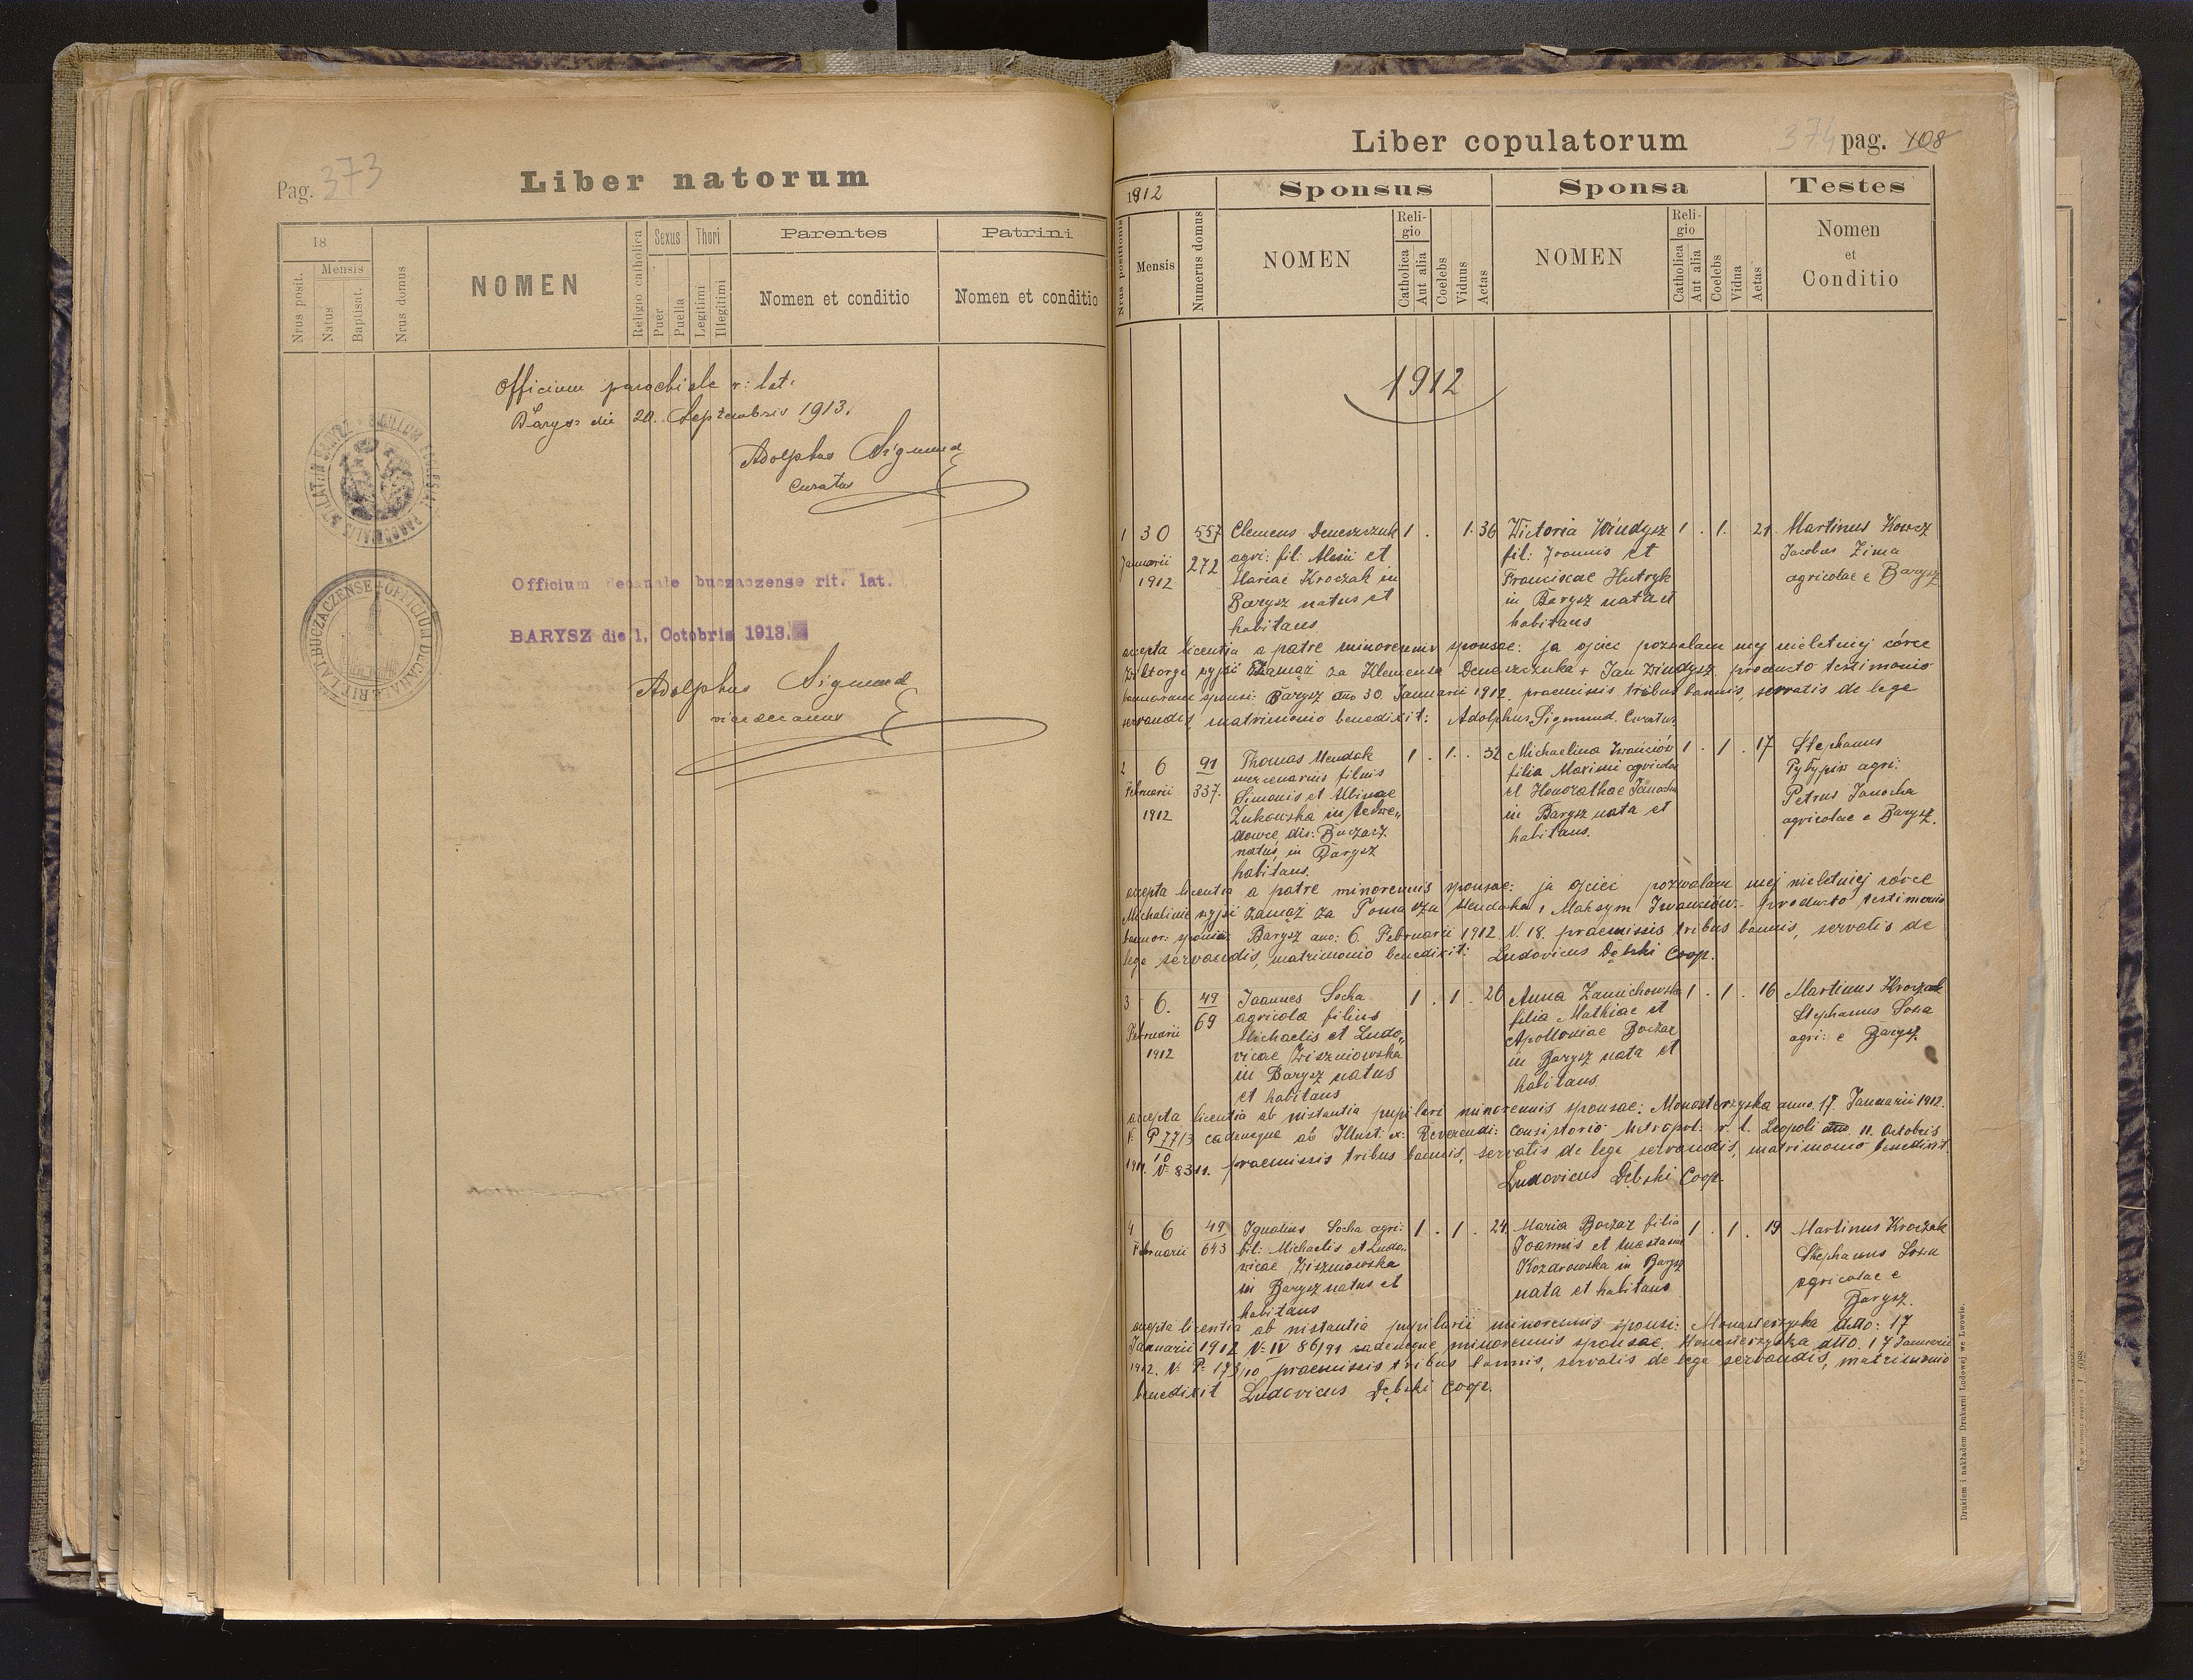 Pag. 373
Liber natorum
18
Nrus posit.
Mensis
Natus
Baptisat.
Nrus domus
NOMEN
Religio catholica
Sexus
Puer
Puella
Thori
Legitimi
Illegitimi
Parentes
Nomen et conditio
Patrini
Nomen et conditio
Officium parochiale r: lat:
Barysz die 20. Septembris 1913.
Adolphus Sigmund
Curatus
Officium decanale buczaczense rit. lat.
BARYSZ die 1. Octobris 1913.
Adolphus Sigmund
vicedecanus
Liber copulatorum
374 pag. 108
1912
Sponsus
Sponsa
Testes
Nrus positionis
Mensis
Numerus domus
NOMEN
Religio
Catholica
Aut alia
Coelebs
Viduus
Aetas
NOMEN
Religio
Catholica
Aut alia
Coelebs
Vidua
Aetas
Nomen
et
Conditio
1912
1 30 557 Clemens Deneszczuk 1 . 1. 36 Wictoria Windysz 1 . 1. 21 Martinus Kowcz
Januarii 272 agri: fil: Alexii et fil: Joannis et Jacobus Zima
1912 Mariae Kroczak in Franciscae Hutryk agricolae e Barysz
Barysz natus et in Barysz nata et
habitans habitans
accepta licentia a patre minorennis sponsae: ja ojciec pozwalam mej nieletniej córce
Wiktoryi wyjść zamąż za Klemensa Deneszczuka + Jan Windysz, producto testimonio
bannorum sponsi: Barysz dto 30 Januarii 1912, praemissis tribus bannis, servatis de lege
servandis, matrimonio benedixit: Adolphus Sigmund. Curatus
2 6 91 Thomas Mendak 1 . 1. . 32 Michaelina Iwanciów 1 . 1 . 17 Stephanus
Februarii 337. mercenarius filius filia Maximi agricolae Pyłypiw agri:
1912 Simonis et Albinae et Honorathae Janocha Petrus Janocha
Żukowska in Medwe„ in Barysz nata et agricolae e Barysz.
dowce, dis: Buczacz habitans.
natus, in Barysz
habitans.
accepta licentia a patre minorennis sponsae: ja ojciec pozwalam mej nieletniej córce
Michalinie wyjść zamąż za Tomasza Mendaka, Maksym Iwanciów. Producto testimonio
bannor: sponsi: Barysz ano: 6. Februarii 1912 N. 18. praemissis tribus bannis, servatis de
lege servandis, matrimonio benedixit: Ludovicus Dębski Coop.
3 6. 49 Joannes Socha 1 . 1 . 26 Anna Zanichowska 1 . 1 . 16 Martinus Kroczak
Februarii 69 agricola filius filia Mathiae et Stephanus Sosna
1912 Michaelis et Ludo„ Apolloniae Boczar agri: e Barysz.
vicae Wiszniowska in Barysz nata et
in Barysz natus habitans
et habitans
accepta licentia ab instantia pupilari minorennis sponsae: Monasterzyska anno. 17. Januarii 1912.
N: P 77/3 eademque ab Illust: et: Reverendi: Consistorio Metropol: r. l. Leopoli dto. 11. Octobris
1911. N: 8311. praemissis tribus bannis, servatis de lege servandis, matrimonio benedixit.
Ludovicus Dębski Coop.
4 6 49 Ignatius Socha agri: 1 . 1 . 24. Maria Boczar filia 1 . 1 . 19 Martinus Kroczak
Februarii 643 fil: Michaelis et Ludo„ Joannis et Anastasiae Stephanus Sosna
vicae Wiszniowska Kozdrowska in Barysz agricolae e
in Barysz natus et nata et habitans Barysz.
habitans
accepta licentia ab instantia pupilarii minorennis sponsi: Monasterzyska dtto: 17
Januarii 1912 N: IV 86/91 eademque minorennis sponsae. Monasterzyska dtto. 17 Januarii
1912. N: P. 173/10 praemissis tribus bannis, servatis de lege servandis, matrimonio
benedixit Ludovicus Dębski Coop.
Drukiem i nakładem Drukarni Ludowej we Lwowie.